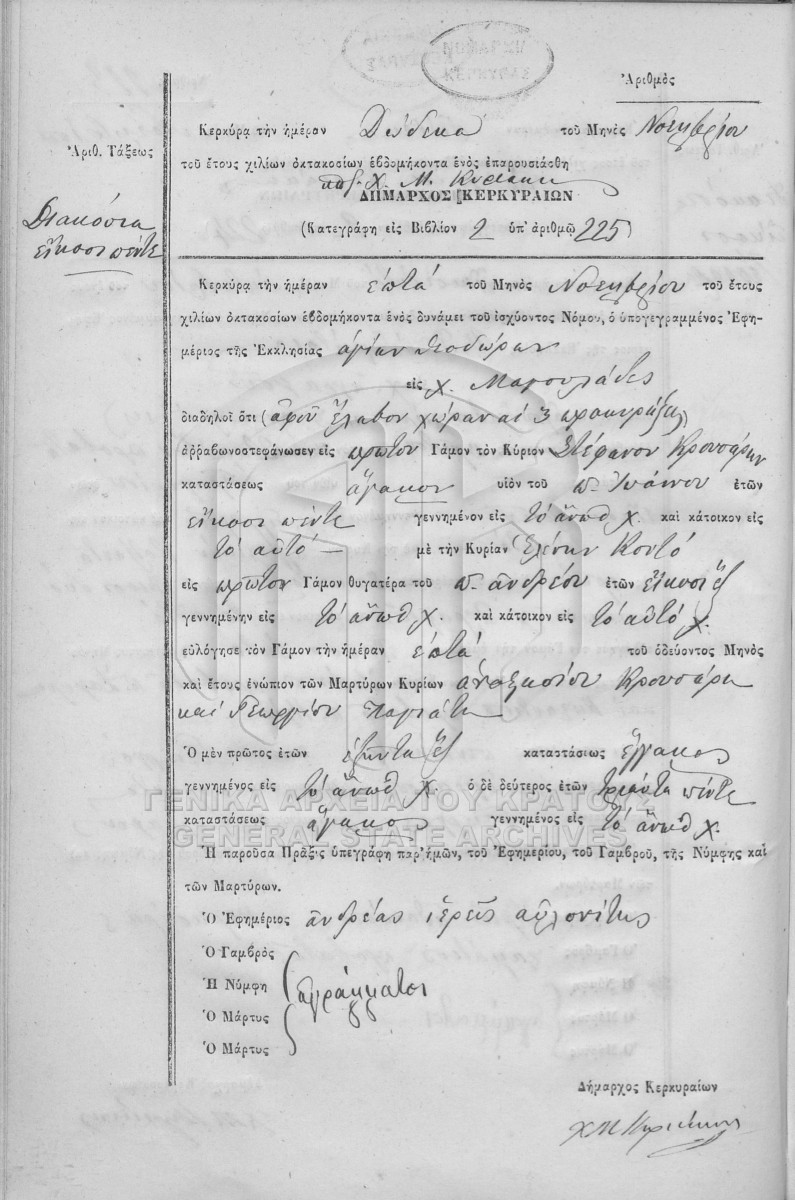 Ἀριθμὸς
Κερκύρᾳ τὴν ἡμέραν Δώδεκα τοῦ Μηνὸς Νοεμβρίου
Ἀριθ. Τάξεως
τοῦ ἔτους χιλίων ὀκτακοσίων ἑβδομήκοντα ἑνὸς ἐπαρουσιάσθη
Χ. Μ. Κυριάκη
ΔΗΜΑΡΧΟΣ ΚΕΡΚΥΡΑΙΩΝ
Διακόσια
εἴκοσι πέντε
(Κατεγράφη εἰς Βιβλίον 2 ὑπ' ἀριθμῷ 225)
Κερκύρᾳ τὴν ἡμέραν ἑπτά τοῦ Μηνὸς Νοεμβρίου τοῦ ἔτους
χιλίων ὀκτακοσίων ἑβδομήκοντα ἑνὸς δυνάμει τοῦ ἰσχύοντος Νόμου, ὁ ὑπογεγραμμένος Ἐφη-
μέριος τῆς Ἐκκλησίας ἁγίων Θεοδώρων
εἰς χ. Μαγουλάδες
διαδηλοῖ ὅτι (ἀφοῦ ἔλαβον χώραν αἱ 3 προκηρύξεις)
ἀῤῥαβωνοστεφάνωσεν εἰς πρῶτον Γάμον τὸν Κύριον Στέφανον Κρουσάρην
καταστάσεως ἄγαμον υἱὸν τοῦ π. Ἰωάννου ἐτῶν
εἴκοσι πέντε γεννημένον εἰς τὸ ἄνωθ χ. καὶ κάτοικον εἰς
τὸ αὐτό — μὲ τὴν Κυρίαν Ἑλένην Κοντό
εἰς πρῶτον Γάμον θυγατέρα τοῦ π. ἀνδρέου ἐτῶν εἴκοσι ἕξ
γεννημένην εἰς τὸ ἄνωθ χ. καὶ κάτοικον εἰς τὸ αὐτό χ.
εὐλόγησε τὸν Γάμον τὴν ἡμέραν ἑπτά τοῦ ὁδεύοντος Μηνὸς
καὶ ἔτους ἐνώπιον τῶν Μαρτύρων Κυρίων ἀναστασίου Κρουσάρη
καὶ Γεωργίου
Ὁ μὲν πρῶτος ἐτῶν ἑξῆντα ἕξ καταστάσεως ἔγγαμος
γεννημένος εἰς τὸ ἄνωθ χ. ὁ δὲ δεύτερος ἐτῶν τριάντα πέντε
ΓΕΝΙΚΑ ΑΡΧΕΙΑ ΤΟΥ ΚΡΑΤΟΥΣ
καταστάσεως ἄγαμος γεννημένος εἰς τὸ ἄνωθ χ.
GENERAL STATE ARCHIVES
Ἡ παροῦσα Πρᾶξις ὑπεγράφη παρ' ἡμῶν, τοῦ Ἐφημερίου, τοῦ Γαμβροῦ, τῆς Νύμφης καὶ
τῶν Μαρτύρων.
Ὁ Ἐφημέριος ἀνδρέας ἱερεὺς αὐλονίτης
Ὁ Γαμβρὸς
Ἡ Νύμφη ἀγράμματοι
Ὁ Μάρτυς
Ὁ Μάρτυς
Δήμαρχος Κερκυραίων